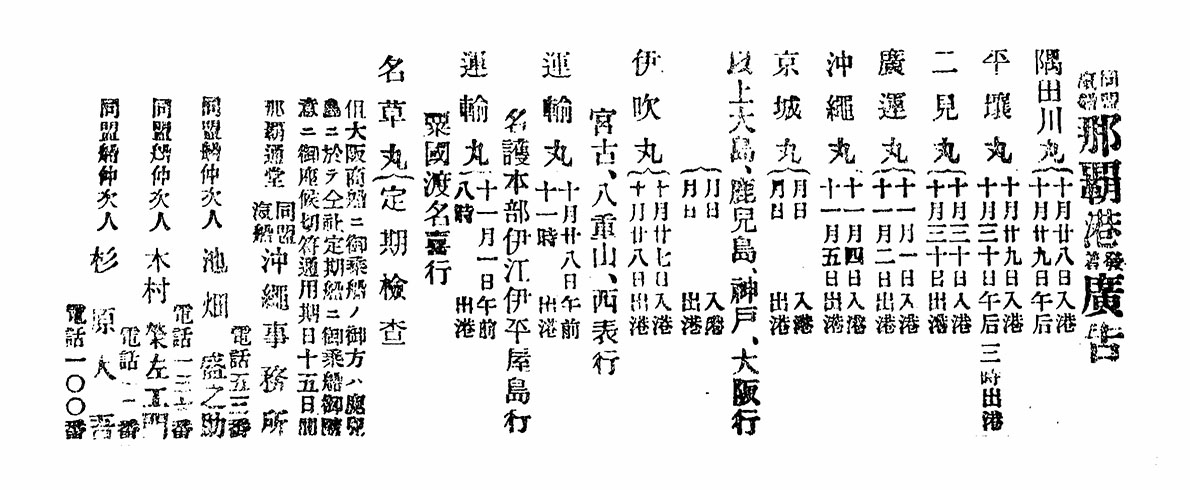 同盟汽船那覇港發着廣告
隅田川丸 十月廿八日入港 十月廿九日午后
平壤丸 十月廿九日入港 十月三十日午后三時出港
二見丸 十月三十日入港 十月三十日出港
廣運丸 十一月一日入港 十一月二日出港
沖繩丸 十一月四日入港 十一月五日出港
京城丸 月日入港 月日出港
以上大島、鹿兒島、神戸、大阪行
月日入港 月日出港
伊吹丸 十月廿七日入港 十月廿八日出港
宮古、八重山、西表行
運輸丸 十月廿八日午前十一時出港
名護本部伊江伊平屋島行
運輸丸 十一月一日午前八時出港
粟國渡名喜行
名草丸 定期檢查
但大阪商船ニ御乘船ノ御方ハ鹿兒
島ニ於テ仝社定期船ニ御乘船御隨
意ニ御座候切符通用期日十五日間
那覇通堂 同盟汽船沖繩事務所
電話五三番
同盟船仲次人 池畑盛之助
電話一三七番
同盟船仲次人 木村榮左衛門
電話一一番
同盟船仲次人 杉原大吾
電話一〇〇番